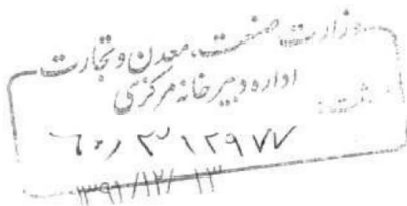 وزارت صنعت، معدن و تجارت
اداره دبیرخانه مرکزی
۶۰/۳۱۲۹۷۷
۱۳۹۱/۱۲/۱۳